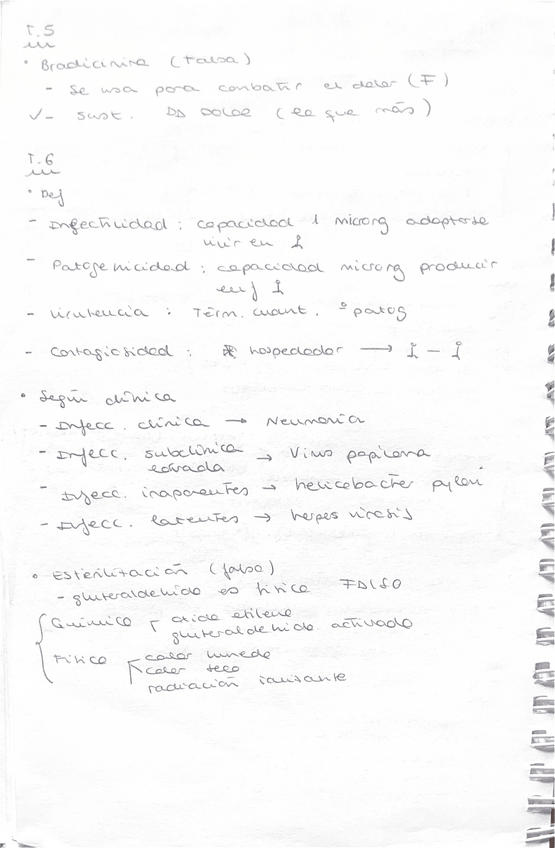 T.5
• Bradicinina (Falsa)
- Se usa para combatir el dolor (F)
✓- Sust. DD DOLOR (la que más)
T.6
• Def
- Infectividad : capacidad microrg adaptarse
vivir en
- Patogenicidad : capacidad microrg producir
enf
- Virulencia : Térm. cuant. º patog
- Contagiosidad : hospedador →
• Según clínica
- Infecc. clínica → Neumonía
- Infecc. subclínica → Virus papiloma
- Infecc. inaparentes → helicobacter pylori
- Infecc. latentes → herpes
• Esterilización (falsa)
- glutaraldehido es físico FALSO
Químico óxido etileno
glutaraldehido activado
Físico calor húmedo
calor seco
radiación ionizante